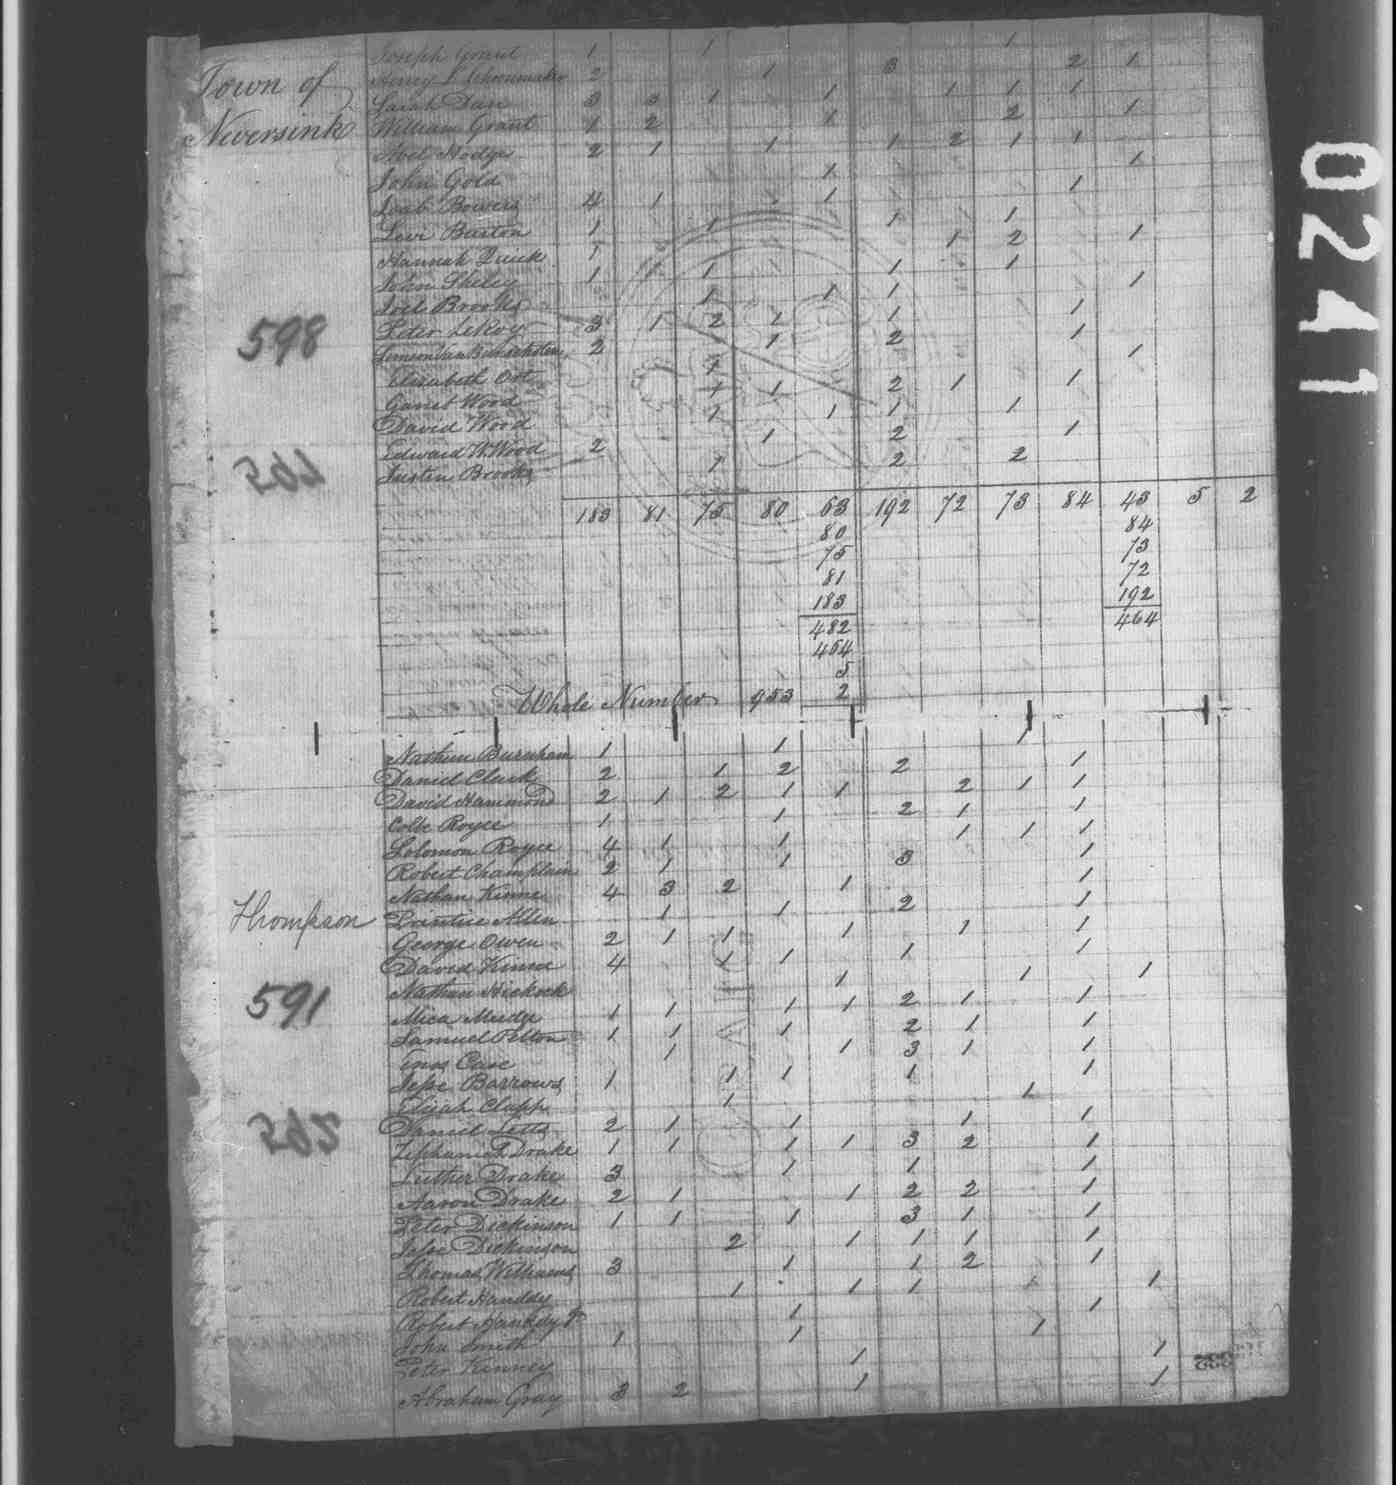 Town of
Neversink
Joseph Grant 1 1 1
Henry L Schoonmaker 2 1 3 2 1
Sarah Dan 3 3 1 1 1 1 1
William Grant 1 2 1 2 1
Abel Hodge 2 1 1 1 2 1 1
John Gold 1 1
Joab Bowers 4 1 1 1
Levi Barton 1 1 1 1
Hannah Quick 1 1 2 1
John Sheley 1 1 1 1 1
Joel Brooks 1 1 1 1
Peter LeRoy 3 1 2 1 1 1
2 1 2 1
Elisabeth 1 1
Garret Wood 1 1 2 1 1
David Wood 1 1 1 1
Edward W. Wood 2 1 2 1
Justin Brooks 1 2 2
183 81 75 80 63 192 72 73 84 43 5 2
80 84
75 73
81 72
183 192
482 464
464
5
Whole Number 953 2
598
564
Thompson
591
565
Nathan Burnham 1 1 1
Daniel Clark 2 1 2 2 1
David Hammond 2 1 2 1 1 2 1 1
Royce 1 1 2 1 1
Solomon Royce 4 1 1 1 1 1
Robert Champlain 2 1 1 3 1
Nathan Kinne 4 3 2 1 1
Prentice Allen 1 1 2 1
George Owen 2 1 1 1 1 1
David Kinne 4 1 1 1 1
Nathan Hickock 1 1 1
Mica Mudge 1 1 1 1 2 1 1
Samuel Pelton 1 1 1 2 1 1
Enos Case 1 1 3 1 1
Jesse Barrows 1 1 1 1 1
Elijah Clapp 1 1
Daniel Letts 2 1 1 1 1
Zephaniah Drake 1 1 1 1 3 2 1
Luther Drake 3 1 1 1
Aaron Drake 2 1 1 2 2 1
Peter Dickinson 1 1 1 3 1 1
Jesse Dickinson 2 1 1 1 1
Thomas Williams 3 1 1 2 1
Robert Handdy 1 1 1 1 1
Robert Handdy Jr 1 1
John Smith 1 1 1
Peter Kinney 1 1
Abraham Gray 3 2 1 1
0241